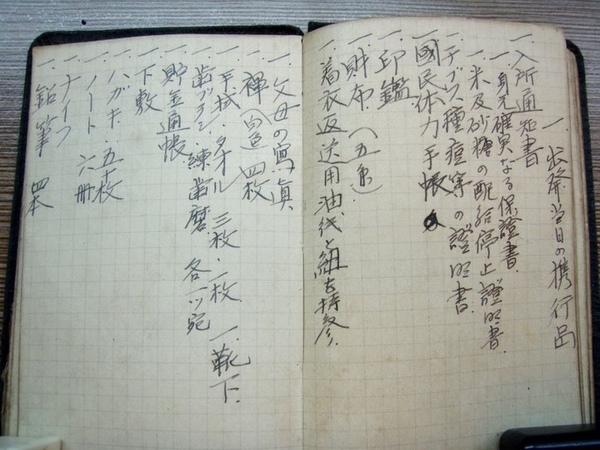 一、出發當日の携行品
一、入所通知書
一、身元確実なる保證書
一、米及砂糖の配給停止證明書
一、チブス種痘等の證明書
一、國民体力手帳
一、印鑑
一、財布(五円)
一、着衣返送用油紙と紐を持参
一、父母の寫眞
一、褌 白色 四枚
一、手拭、タオル 三枚、一枚 一、靴下
一、歯ブラシ、練歯磨 各一ツ宛
一、貯金通帳
一、下敷
一、ハガキ、五十枚
一、ノート 六冊
一、ナイフ
一、鉛筆 四本